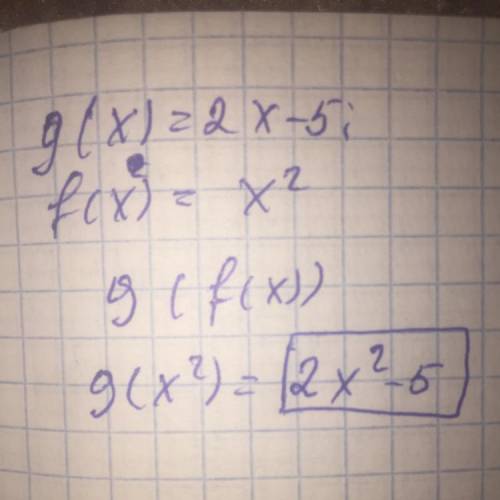 g(x) = 2x-5;
f(x) = x²
g(f(x))
g(x²) = 2x²-5